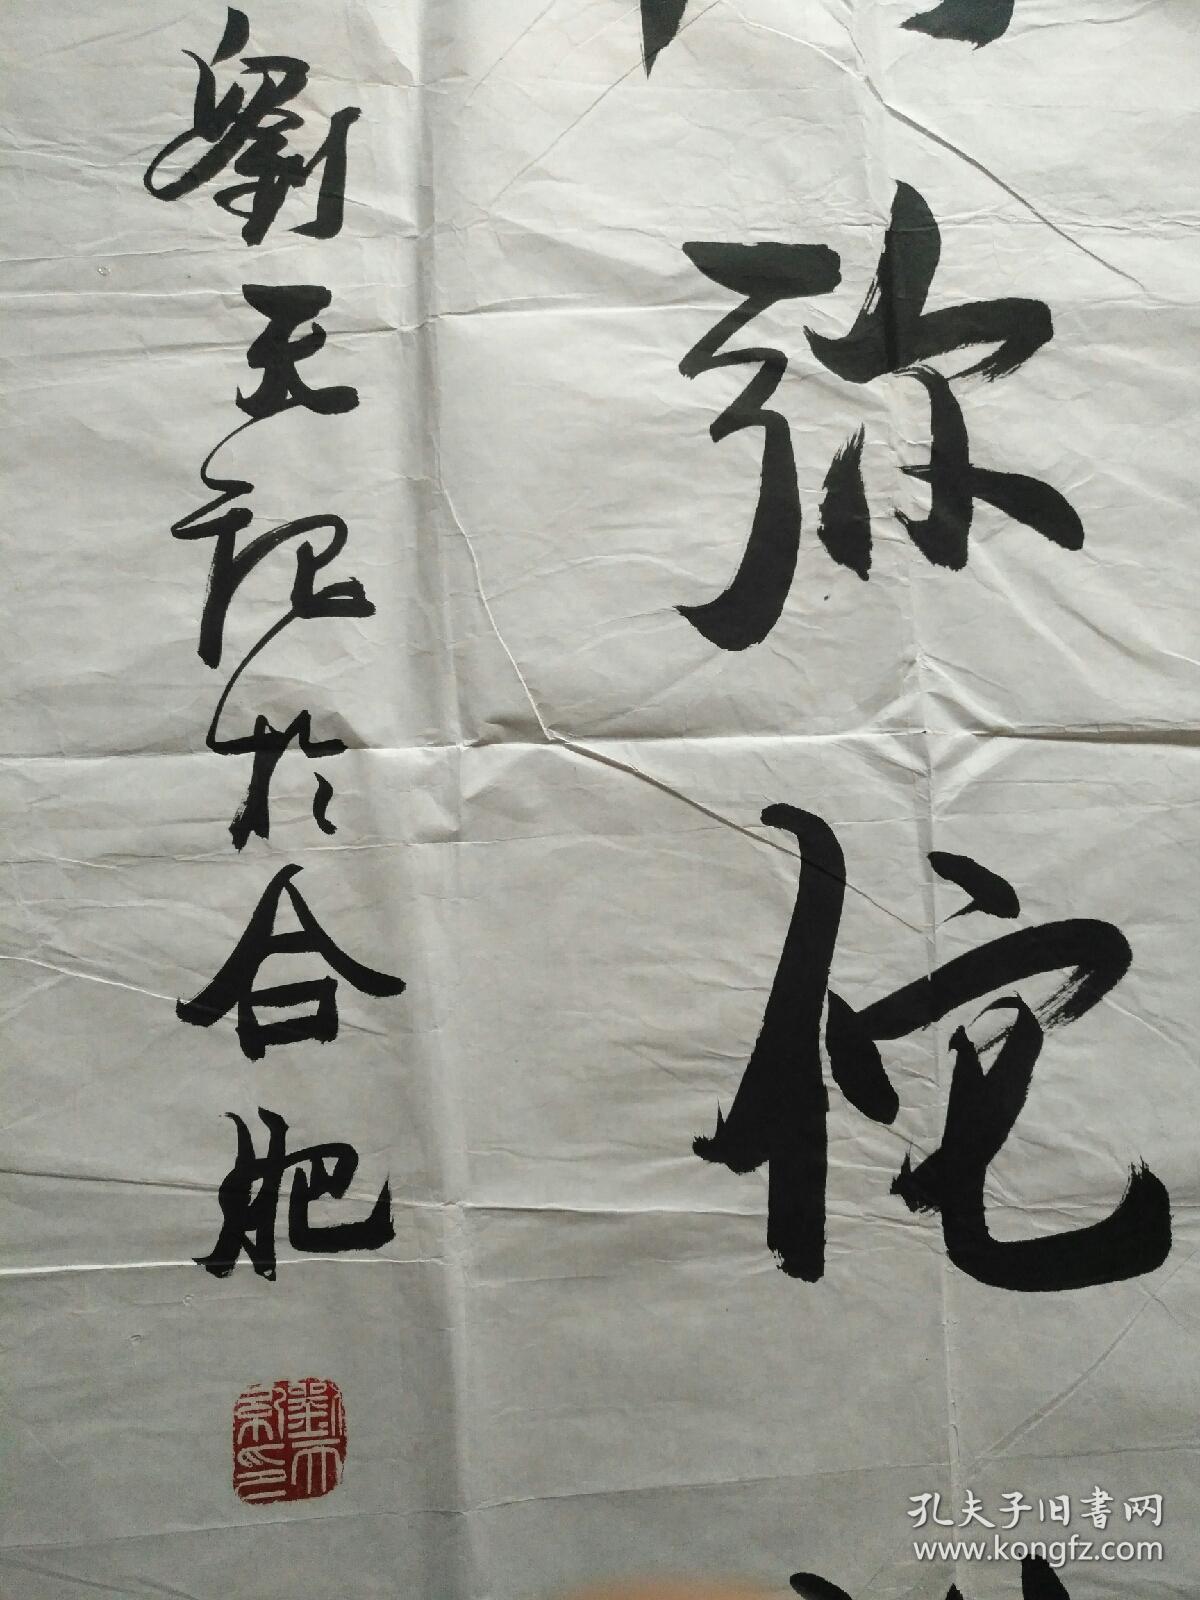 弥佗
劉天於合肥
孔夫子旧書网
www.kongfz.com